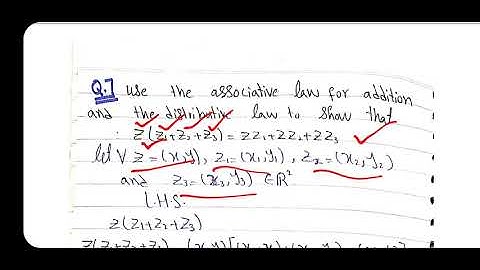 Q.7 use the associative law for addition
and the distributive law to show that
z(z₁+z₂+z₃) = zz₁+zz₂+zz₃
let ∀ z=(x,y), z₁=(x₁,y₁), z₂=(x₂,y₂)
and z₃=(x₃,y₃) ∈ℝ²
L.H.S.
z(z₁+z₂+z₃)